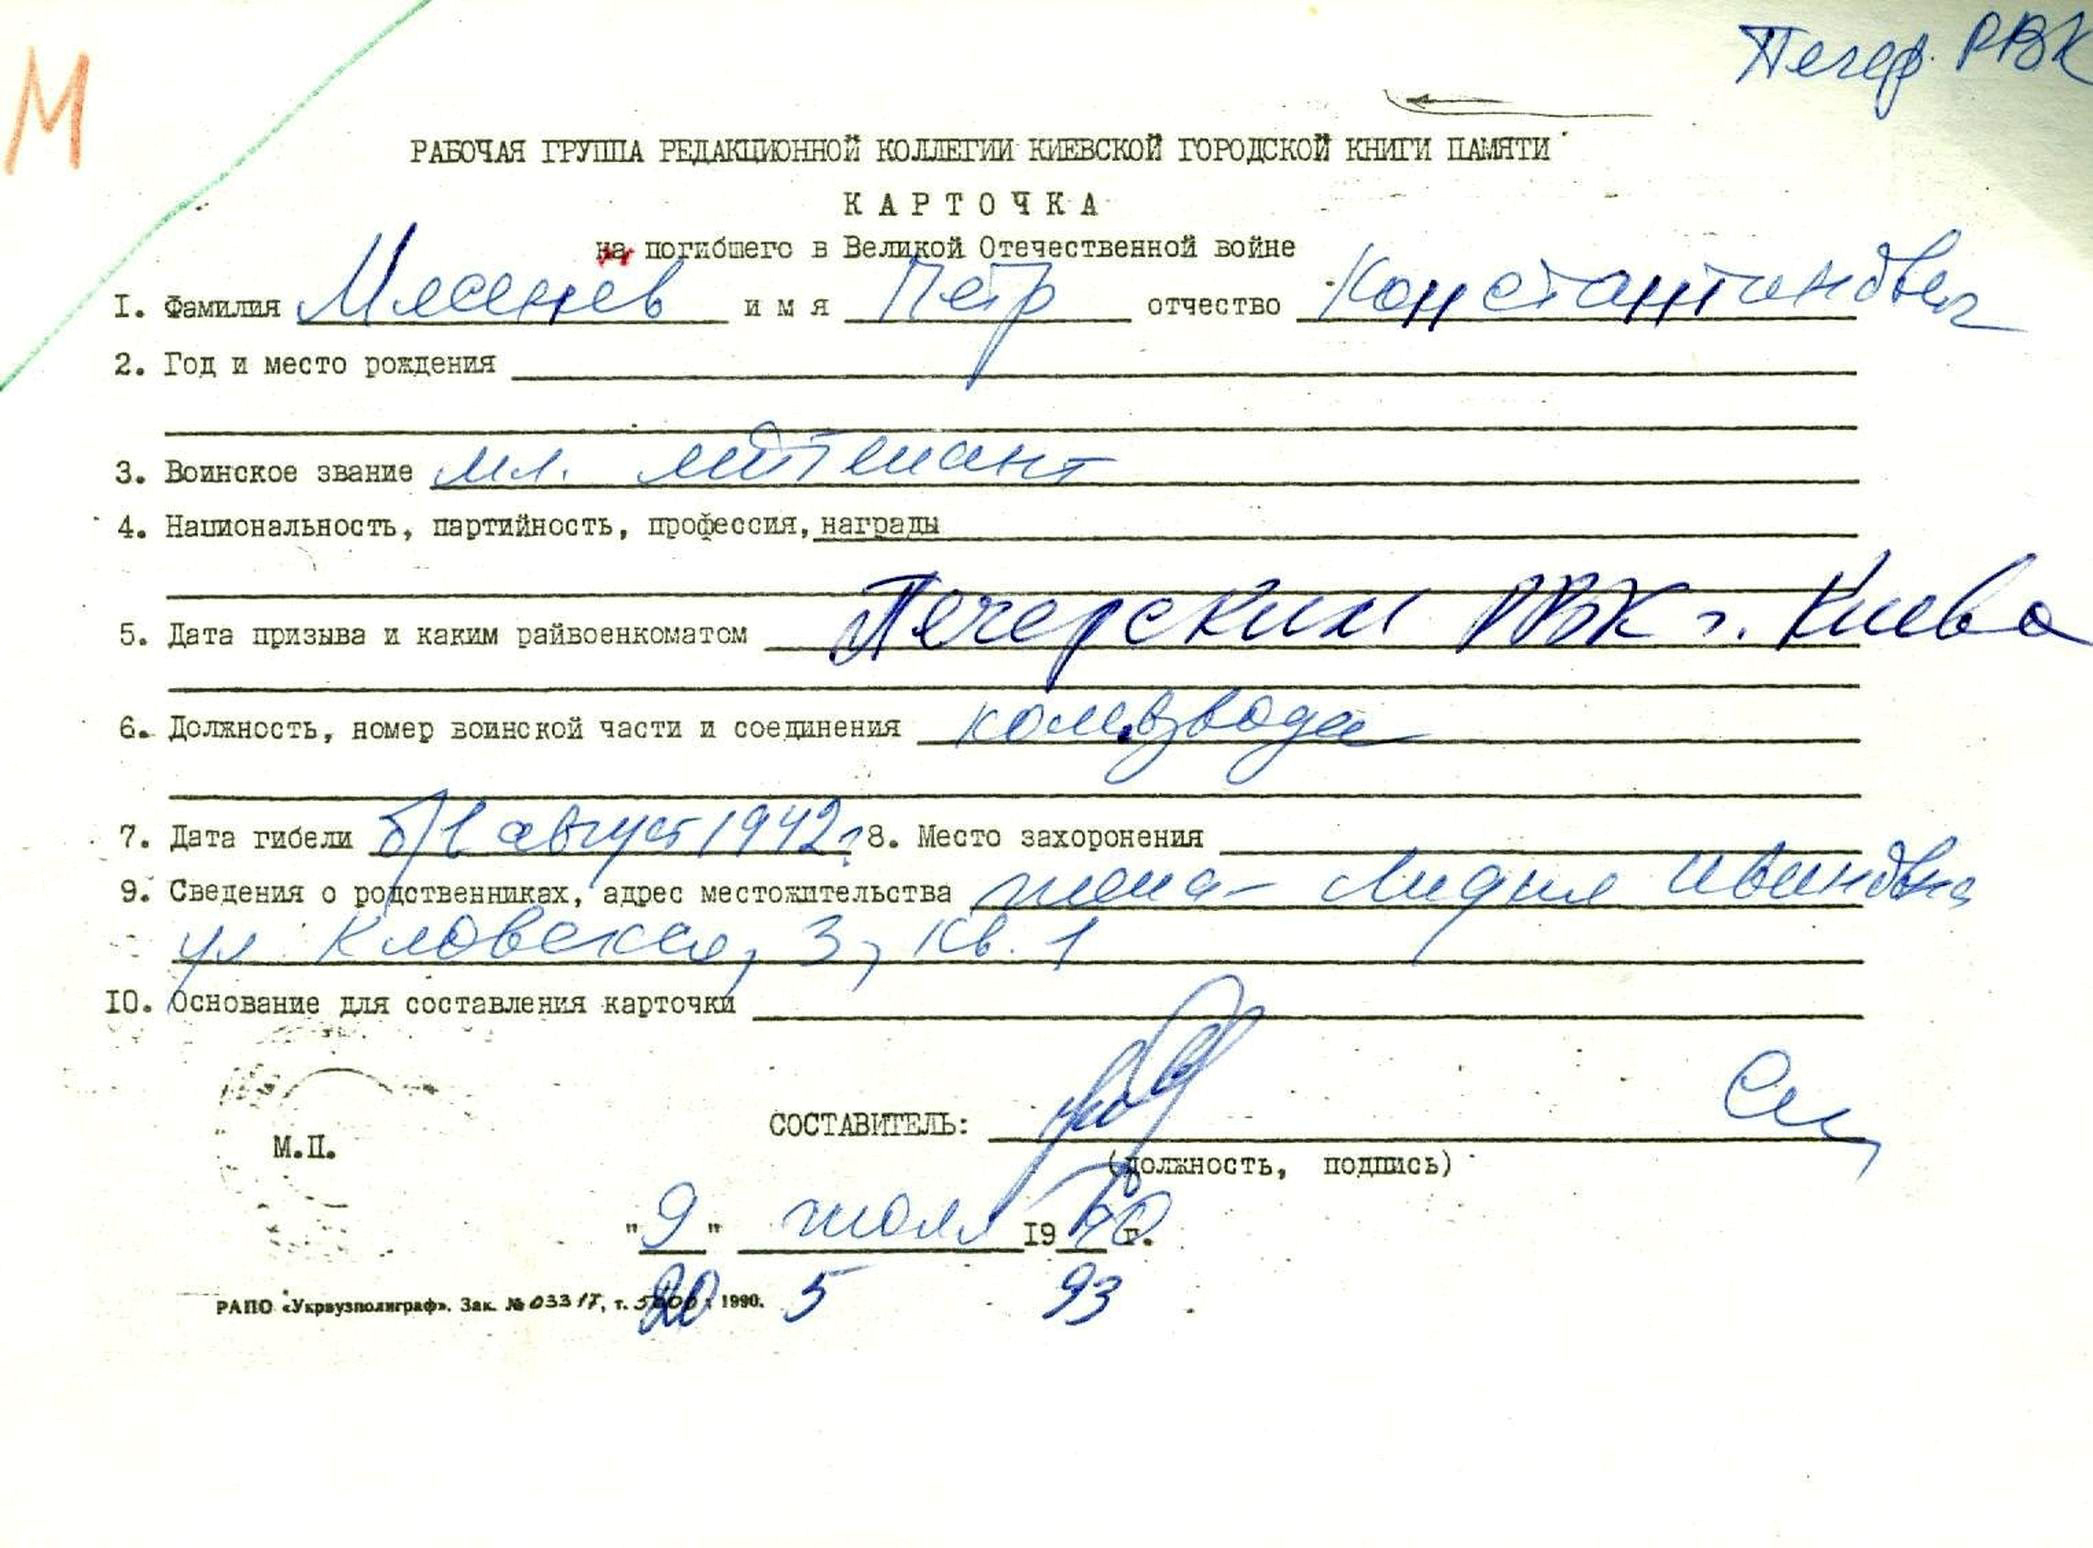 Печер. РВК
М
РАБОЧАЯ ГРУППА РЕДАКЦИОННОЙ КОЛЛЕГИИ КИЕВСКОЙ ГОРОДСКОЙ КНИГИ ПАМЯТИ
КАРТОЧКА
на погибшего в Великой Отечественной войне
1. Фамилия имя Петр отчество Константинович
2. Год и место рождения
3. Воинское звание мл. лейтенант
4. Национальность, партийность, профессия, награды
5. Дата призыва и каким райвоенкоматом Печерским РВК г. Киева
6. Должность, номер воинской части и соединения ком.взвода
7. Дата гибели август 1942г. 8. Место захоронения
9. Сведения о родственниках, адрес местожительства жена - Лидия Ивановна
ул Кловская, 3, кв. 1
10. Основание для составления карточки
СОСТАВИТЕЛЬ:
М.П.
(должность, подпись)
"9" июля 1990 г.
20 5 93
РАПО «Укрвузполиграф». Зак. № 0331Т, т. 1990.